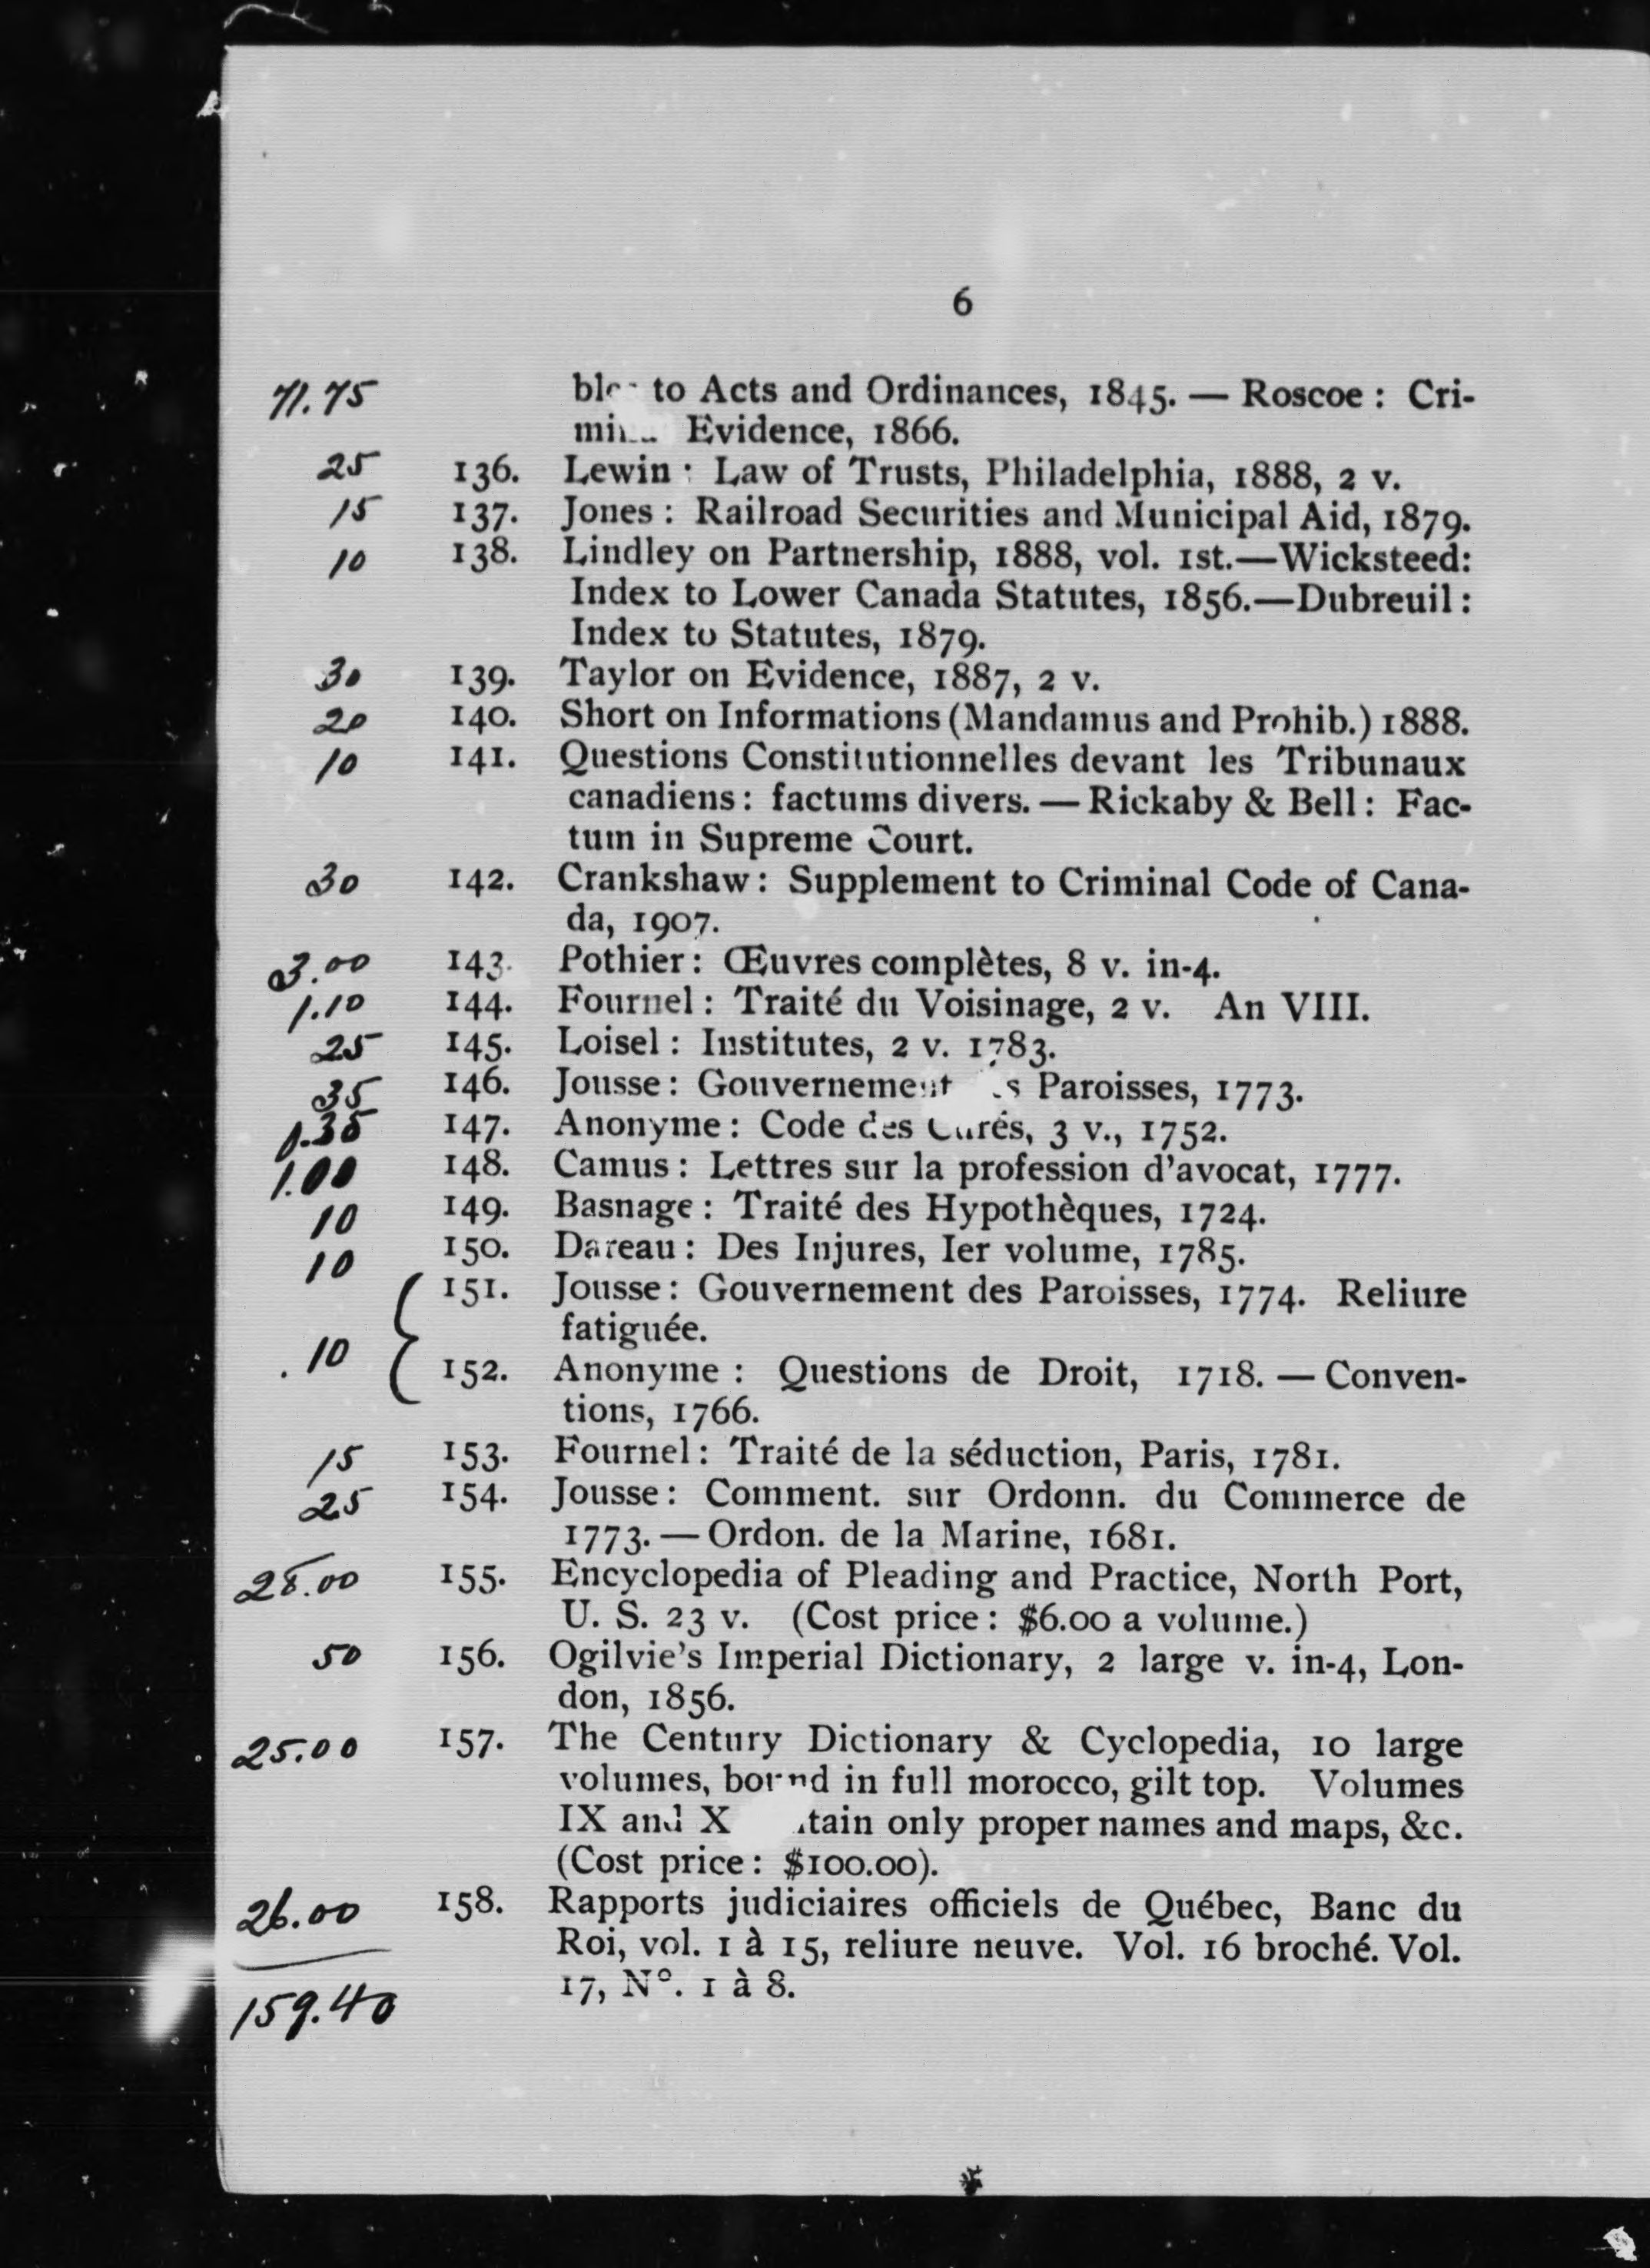 6
71.75 to Acts and Ordinances, 1845. — Roscoe : Cri-
Evidence, 1866.
25 136. Lewin : Law of Trusts, Philadelphia, 1888, 2 v.
15 137. Jones : Railroad Securities and Municipal Aid, 1879.
10 138. Lindley on Partnership, 1888, vol. 1st.—Wicksteed:
Index to Lower Canada Statutes, 1856.—Dubreuil :
Index to Statutes, 1879.
30 139. Taylor on Evidence, 1887, 2 v.
20 140. Short on Informations (Mandamus and Prohib.) 1888.
10 141. Questions Constitutionnelles devant les Tribunaux
canadiens : factums divers. — Rickaby & Bell : Fac-
tum in Supreme Court.
30 142. Crankshaw : Supplement to Criminal Code of Cana-
da, 1907.
3.00 143. Pothier : Œuvres complètes, 8 v. in-4.
1.10 144. Fournel : Traité du Voisinage, 2 v. An VIII.
25 145. Loisel : Institutes, 2 v. 1783.
35 146. Jousse : Gouvernement Paroisses, 1773.
1.35 147. Anonyme : Code des Curés, 3 v., 1752.
1.00 148. Camus : Lettres sur la profession d'avocat, 1777.
10 149. Basnage : Traité des Hypothèques, 1724.
10 150. Dareau : Des Injures, Ier volume, 1785.
{ 151. Jousse : Gouvernement des Paroisses, 1774. Reliure
fatiguée.
.10 152. Anonyme : Questions de Droit, 1718. — Conven-
tions, 1766.
15 153. Fournel : Traité de la séduction, Paris, 1781.
25 154. Jousse : Comment. sur Ordonn. du Commerce de
1773. — Ordon. de la Marine, 1681.
28.00 155. Encyclopedia of Pleading and Practice, North Port,
U. S. 23 v. (Cost price : $6.00 a volume.)
50 156. Ogilvie's Imperial Dictionary, 2 large v. in-4, Lon-
don, 1856.
25.00 157. The Century Dictionary & Cyclopedia, 10 large
volumes, bound in full morocco, gilt top. Volumes
IX and X only proper names and maps, &c.
(Cost price : $100.00).
26.00 158. Rapports judiciaires officiels de Québec, Banc du
Roi, vol. 1 à 15, reliure neuve. Vol. 16 broché. Vol.
17, N°. 1 à 8.
159.40